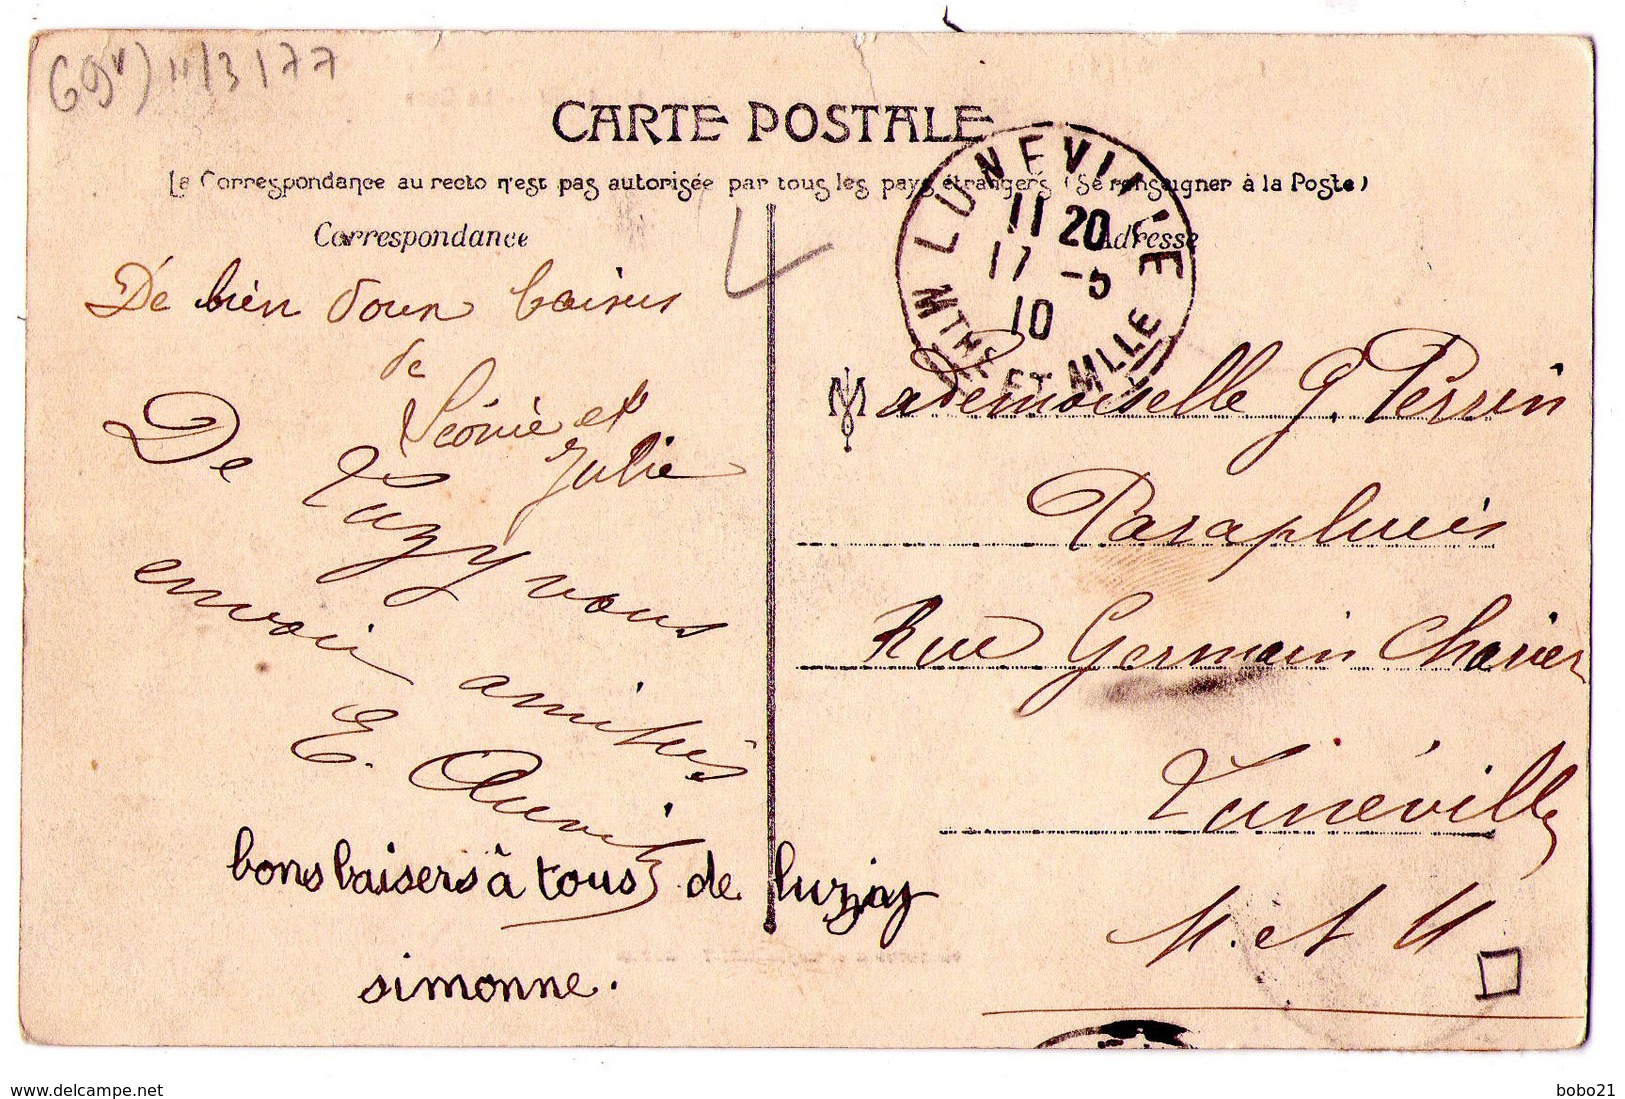 69v) 11/3/77
CARTE POSTALE
La Correspondance au recto n'est pas autorisée par tous les pays étrangers (Se renseigner à la Poste)
Correspondance
De bien doux baisers
de
Léonie et
Julie
De Luzy vous
envoie amitiés
E.
bons baisers à tous de luzay
simonne.
LUNEVILLE
11 20
17 -5
10
MTHE ET MLLE
Adresse
Mademoiselle G. Perrin
Parapluies
Rue Germain Charier
Lunéville
M. et M
www.delcampe.net
bobo21